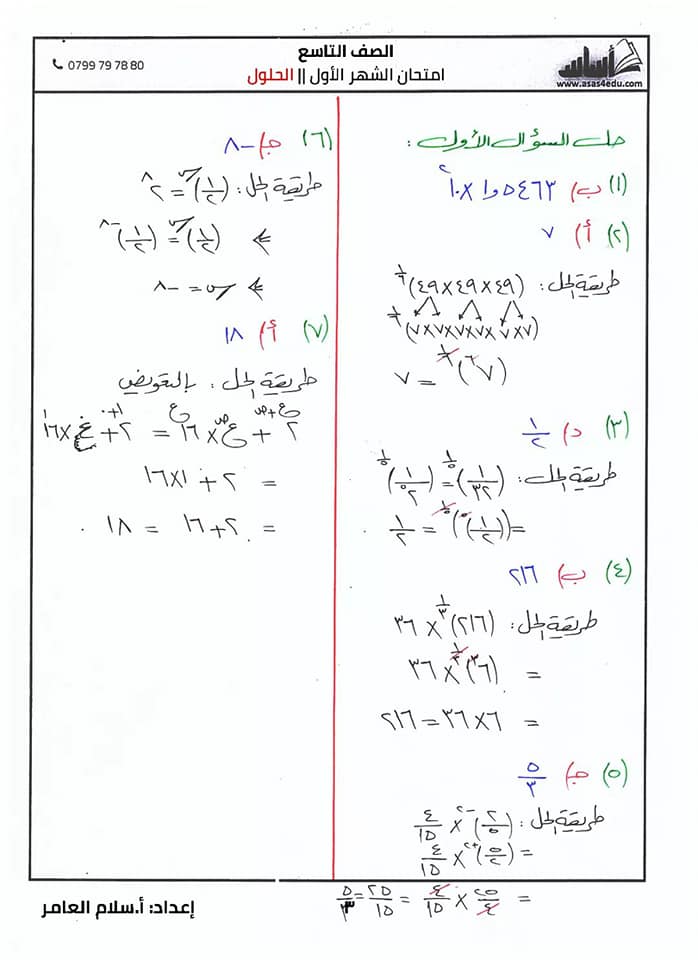 الصف التاسع
امتحان الشهر الأول || الحلول
0799 79 78 80
أساس
www.asas4edu.com
حل السؤال الأول :
(١) ب) ٥٤٦٣ر١ × ١٠^٢
(٢) أ) ٧
طريقة الحل : (٤٩×٤٩×٤٩)^(١/٦)
(٧×٧×٧×٧×٧×٧)^(١/٦)
(٧^٦)^(١/٦) = ٧
(٣) د) ١/٢
طريقة الحل : (١/٣٢)^(١/٥) = (١/٢^٥)^(١/٥)
=((١/٢)^٥)^(١/٥) = ١/٢
(٤) ب) ٢١٦
طريقة الحل : (٢١٦)^(١/٣) × ٣٦
= (٦^٣)^(١/٣) × ٣٦
= ٦×٣٦ = ٢١٦
(٥) جـ) ٥/٣
طريقة الحل : (٢/٥)^-٢ × ٤/١٥
= (٥/٢)^+٢ × ٤/١٥
= ٢٥/٤ × ٤/١٥ = ٢٥/١٥ = ٥/٣
(٦) جـ) -٨
طريقة الحل : (١/٢)^س = ٢^٨
⇐ (١/٢)^س = (١/٢)^-٨
⇐ س = -٨
(٧) أ) ١٨
طريقة الحل : بالتعويض
٢^(ع+ص) + ع^ص × ١٦^ع = ٢^(٠+١) + ع^٠ × ١٦^١
= ٢ + ١×١٦
= ٢+١٦ = ١٨ .
إعداد: أ.سلام العامر